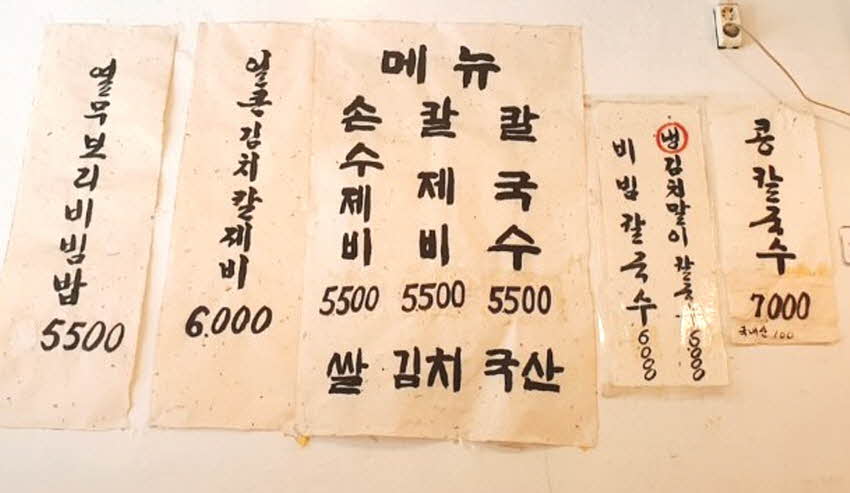 열무보리비빔밥
5500
얼큰김치칼제비
6.000
메뉴
칼국수
5500
칼제비
5500
손수제비
5500
쌀 김치 국산
냉김치말이칼국수
6000
비빔칼국수
6000
콩칼국수
7000
국내산 100